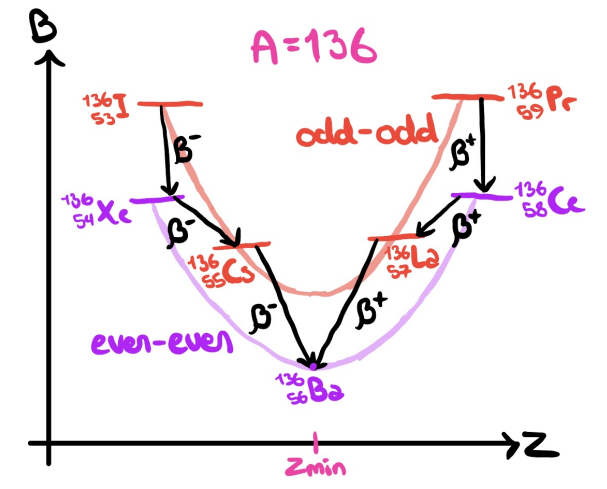 B
A=136
136 53 I
136 59 Pr
odd-odd
β⁻
β⁺
136 54 Xe
136 58 Ce
β⁻
β⁺
136 55 Cs
136 57 La
β⁻
β⁺
even-even
136 56 Ba
Z
Zmin